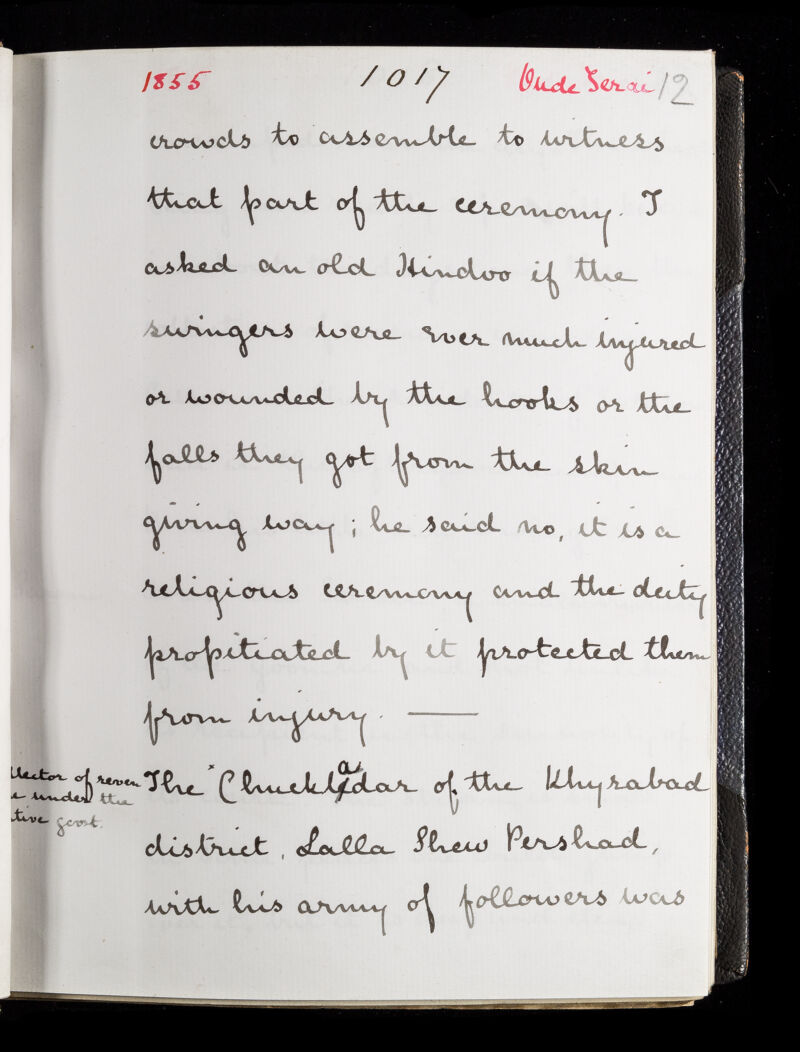 1855 1017 Oude Terai 12
crowds to assemble to witness
that part of the ceremony. I
asked an old Hindoo if the
swingers were ever much injured
or wounded by the hooks or the
falls they got from the skin
giving way; he said no, it is a
religious ceremony and the deity
propitiated by it protected them
from injury. —
llector of reven
e under the
tive govt.
The * Chuckladar of the Khyrabad
district, Lalla Shew Pershad,
with his army of followers was